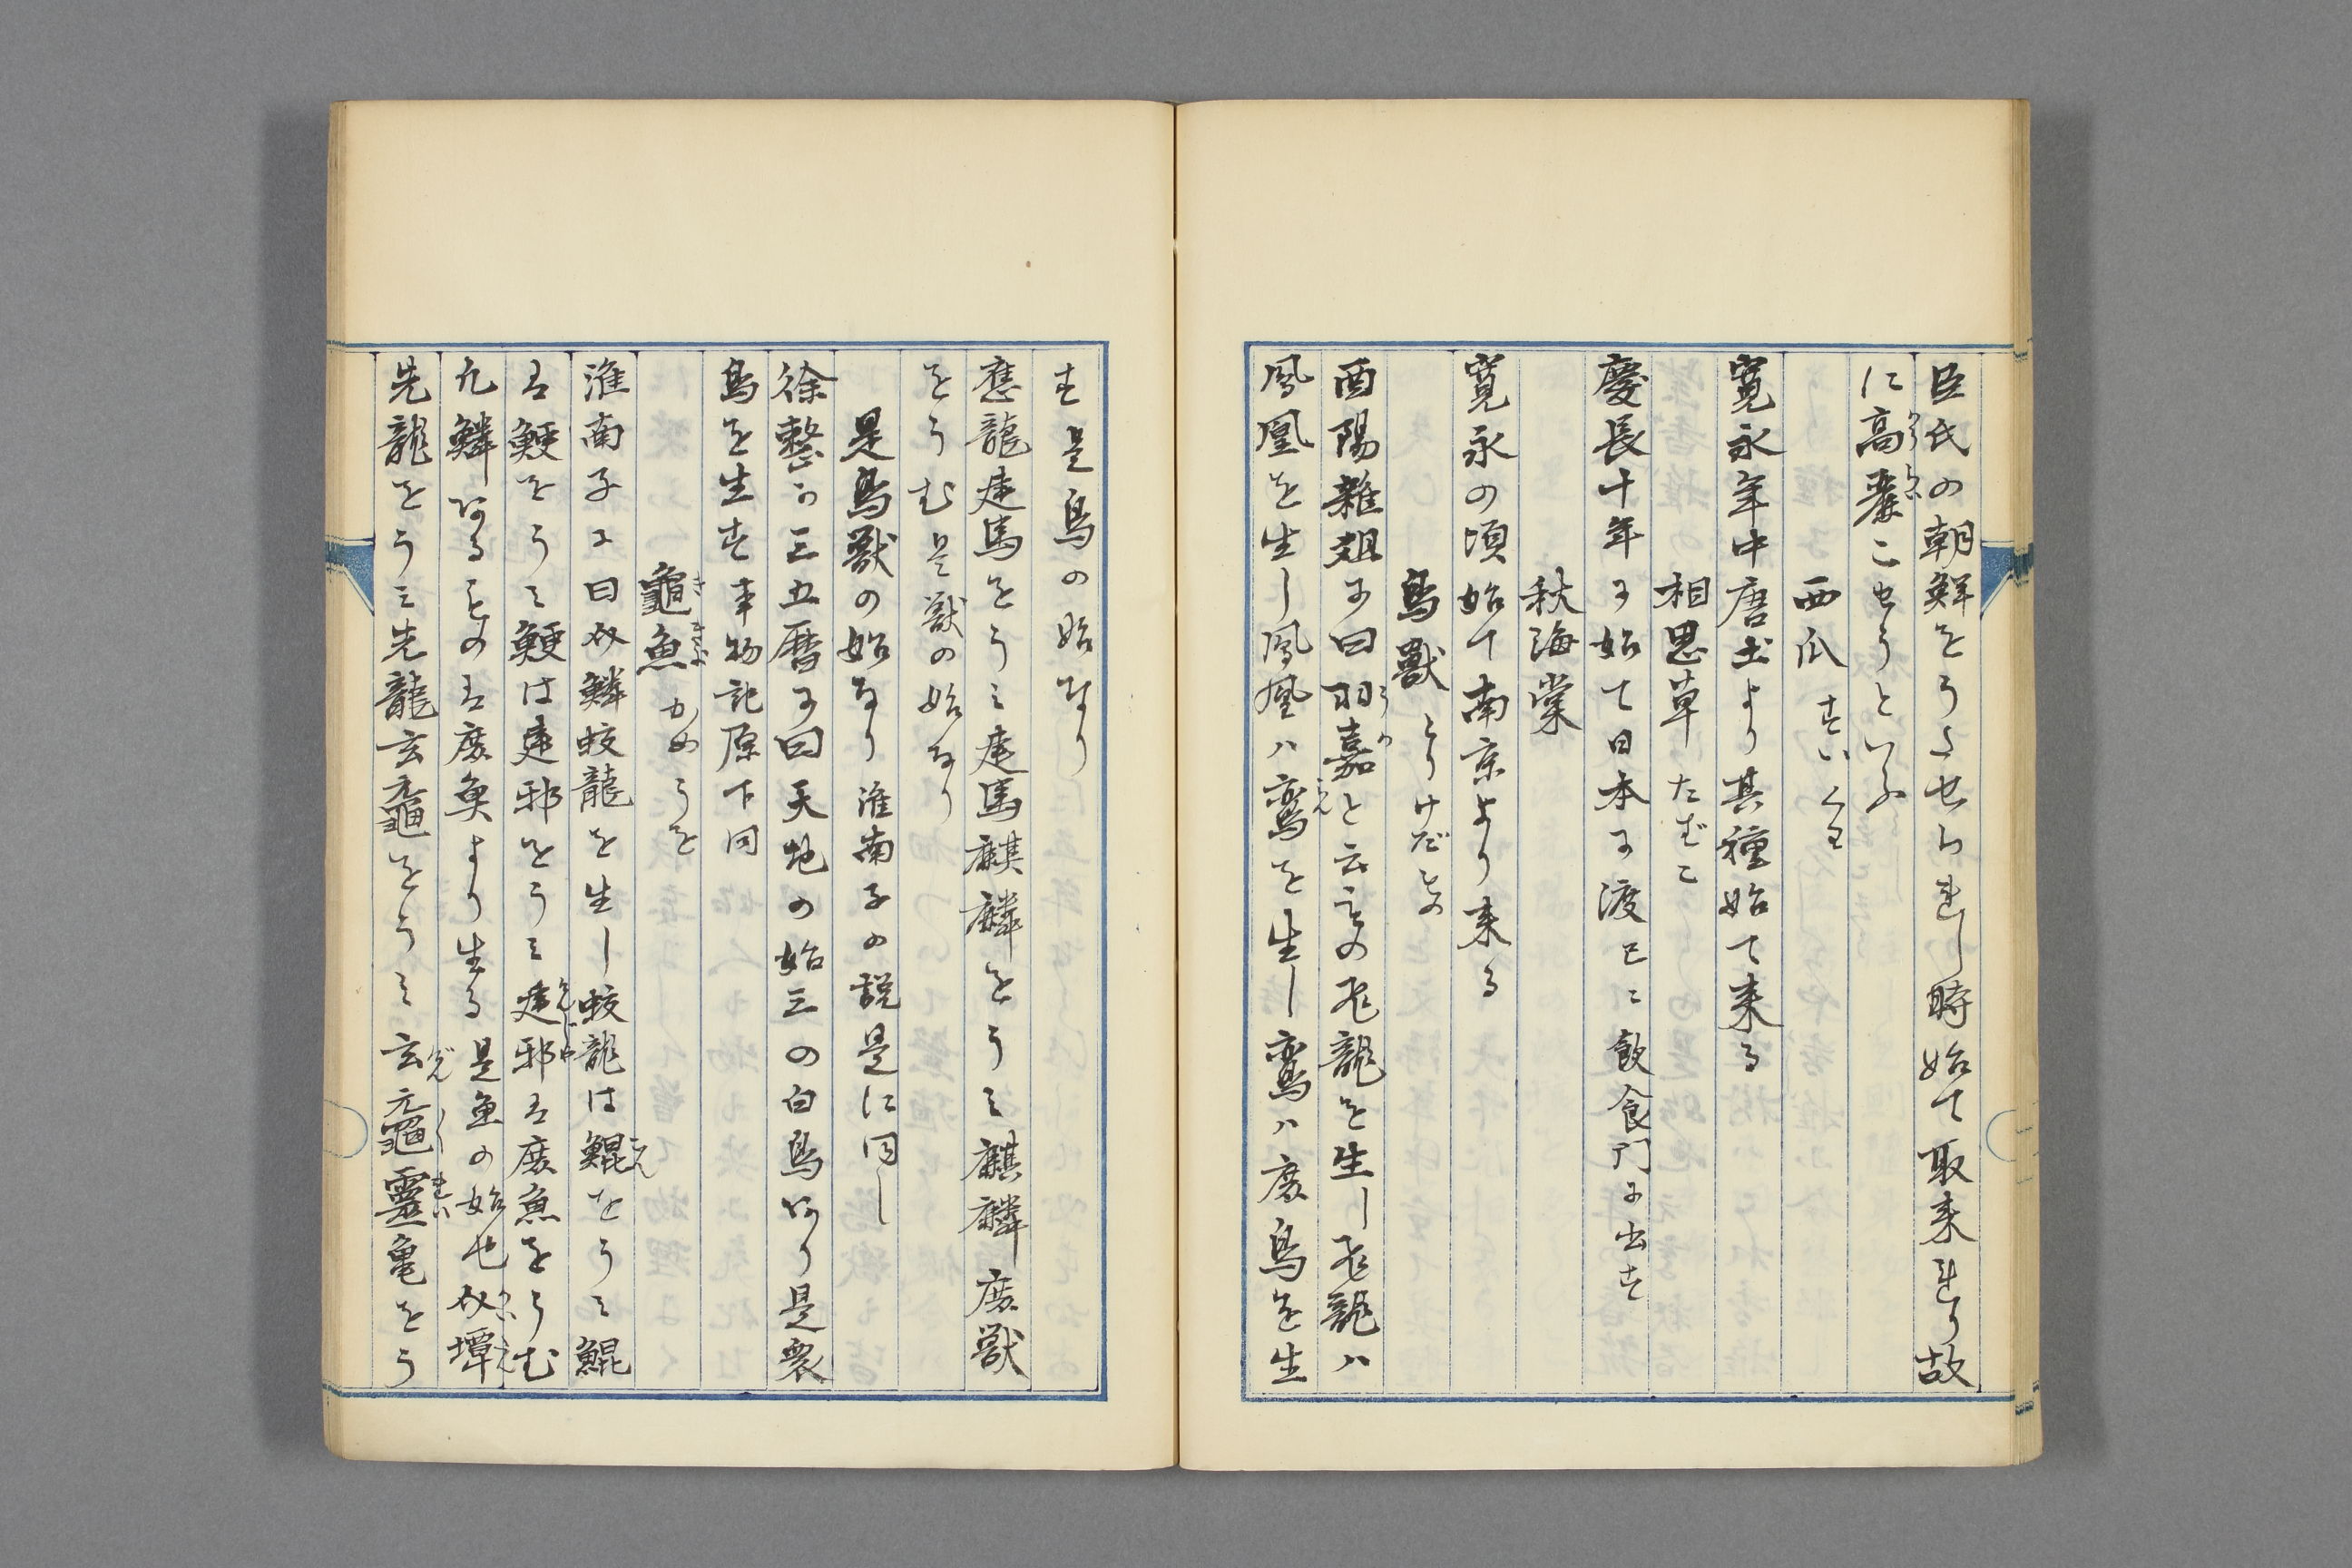 臣氏の朝鮮をうたせられし時始て取来れり故
に高麗こせうといふ
西瓜 すいくわ
寛永年中唐土より其種始て来る
相思草 たばこ
慶長十年に始て日本に渡ると飲食門に出す
秋海棠
寛永の頃始て南京より来る
鳥獣 とりけだもの
酉陽雑俎に曰羽嘉と云もの飛龍を生し飛龍ハ
鳳凰を生し鳳凰ハ鸞を生し鸞ハ庶鳥を生
す是鳥の始なり
應龍建馬をうミ建馬麒麟をうミ麒麟庶獣
をうむ是獣の始なり
是鳥獣の始なり淮南子の説是に同し
徐整か三五暦に曰天地の始三の白鳥あり是衆
鳥を生す事物記原下同
龜魚 かめうを
淮南子に曰介鱗蛟龍を生し蛟龍は鯤をうミ鯤
は鯁をうミ鯁は建邪をうミ建邪は庶魚をうむ
凡鱗ある もの は庶魚より生る是魚の始也介潭
先龍をうミ先龍玄黿をうミ玄黿靈亀をう